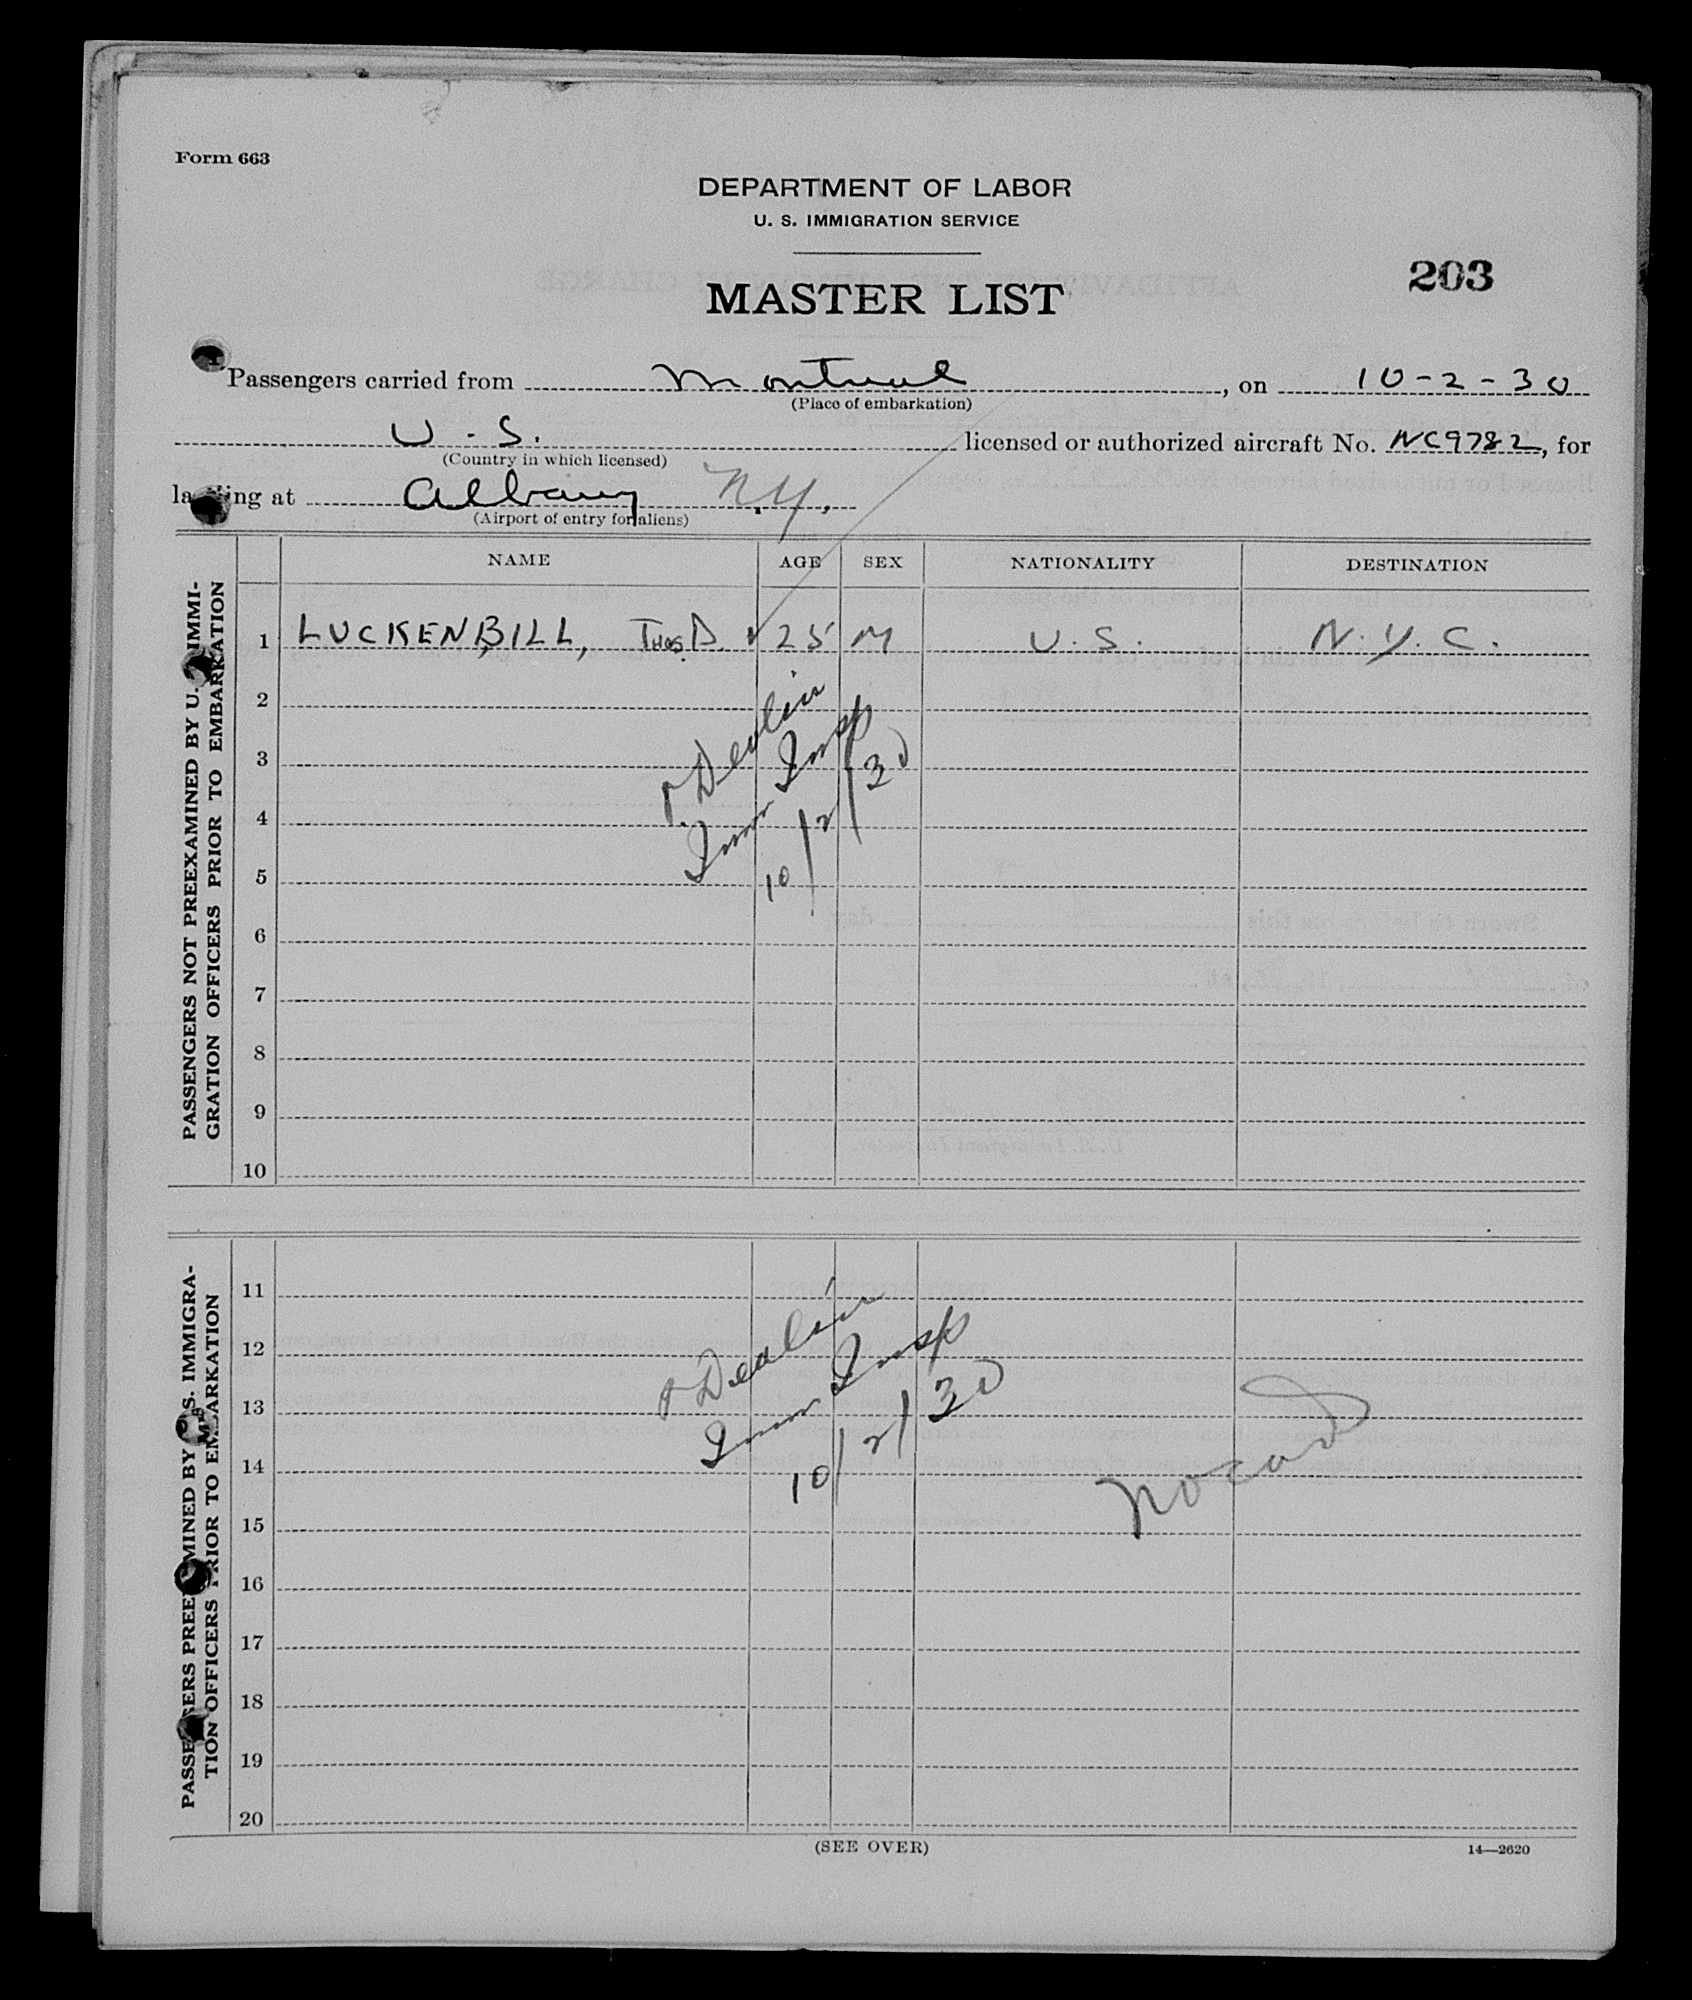 Form 663
DEPARTMENT OF LABOR
U. S. IMMIGRATION SERVICE
203
MASTER LIST
Passengers carried from Montreal, on 10-2-30
(Place of embarkation)
U.S. licensed or authorized aircraft No. NC9782, for
(Country in which licensed)
landing at Albany N.Y.
(Airport of entry for aliens)
NAME AGE SEX NATIONALITY DESTINATION
PASSENGERS NOT PREEXAMINED BY U. S. IMMI-
GRATION OFFICERS PRIOR TO EMBARKATION
1 LUCKENBILL, THOS. D. 25 M U.S. N.Y.C.
2
3
4
5
P. Devlin
Imm Insp
10/2/30
6
7
8
9
10
PASSENGERS PREEXAMINED BY U. S. IMMIGRA-
TION OFFICERS PRIOR TO EMBARKATION
11
12
13
14
P Devlin
Imm Insp
10/2/30
no card
15
16
17
18
19
20
(SEE OVER)
14—2620